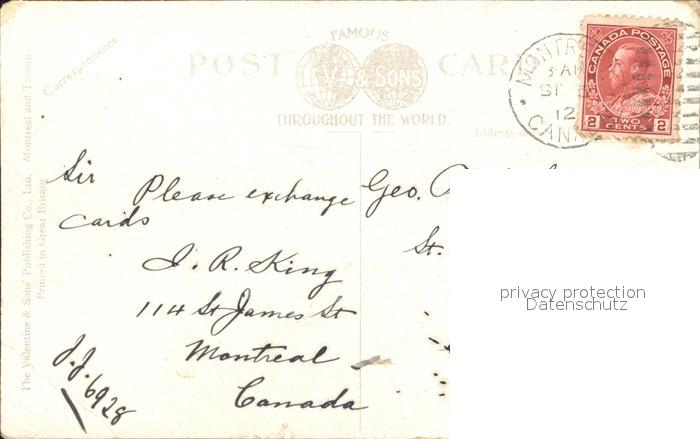 FAMOUS
POST CARD
V & SONS
THROUGHOUT THE WORLD.
Correspondence
Address
The Valentine & Sons' Publishing Co., Ltd. Montreal and Toronto.
Printed in Great Britain
MONTR
3-AM
SP
12
CANA
CANADA POSTAGE
2 TWO CENTS 2
Sir
Please exchange
cards
J. R. King
114 St James St
Montreal
Canada
J.J. 6928
Geo.
St.
privacy protection
Datenschutz